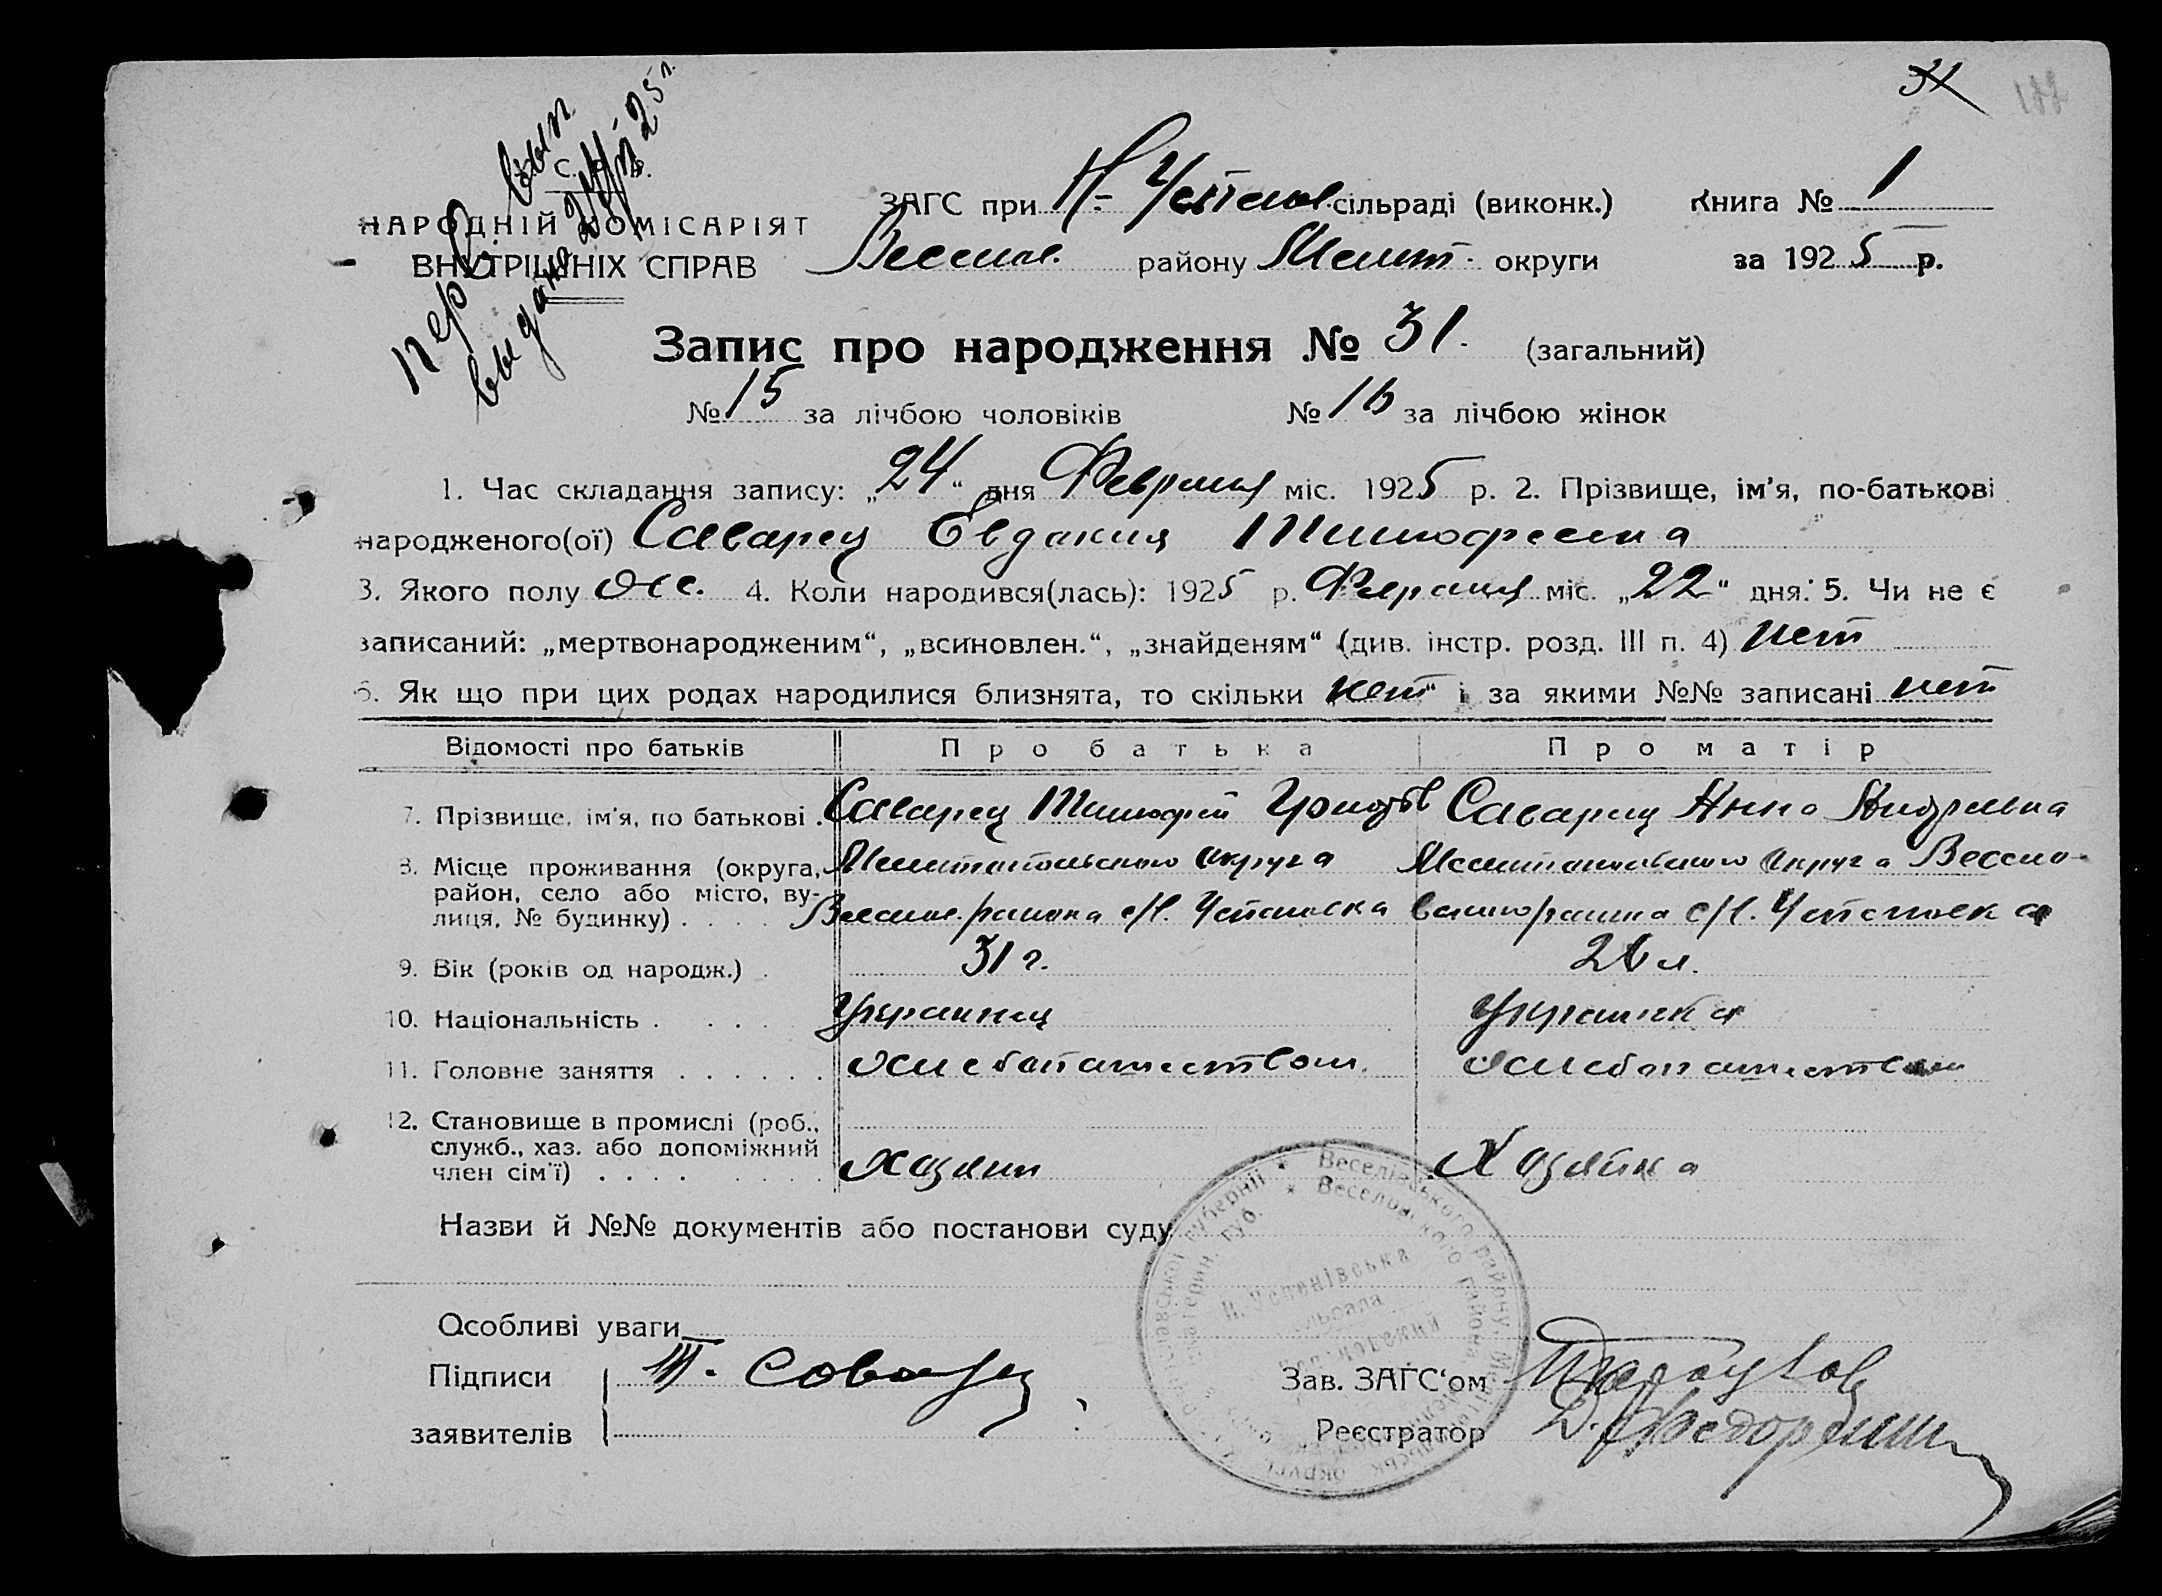 31
177
перв. вып
выдано 24/II-25 г.
НАРОДНІЙ КОМІСАРІЯТ
ВНУТРІШНІХ СПРАВ
ЗАГС при Н-Успенов сільраді (виконк.) Книга № 1
Веселов. району Мелит. округи за 1925 р.
Запис про народження № 31. (загальний)
№ 15 за лічбою чоловіків № 16 за лічбою жінок
1. Час складання запису: „24“ дня Февраля міс. 1925 р. 2. Прізвище, ім'я, по-батькові
народженого(ої) Саварец Евдакия Тимофеевна
3. Якого полу жс. 4. Коли народився(лась): 1925 р. Февраля міс. „22“ дня. 5. Чи не є
записаний: „мертвонародженим“, „всиновлен.“, „знайденям“ (див. інстр. розд. III п. 4) нет
6. Як що при цих родах народилися близнята, то скільки „нет“ і за якими №№ записані нет
Відомості про батьків Про батька Про матір
7. Прізвище, ім'я, по батькові . Саварец Тимофей Саварец Анна Андреевна
8. Місце проживання (округа, Мелитопольского округа Мелитопольского округа Весело-
район, село або місто, ву- Веселов. района с/с. Успеновка ванного района с/с. Успеновка
лиця, № будинку) . . . .
9. Вік (років од народж.) . 31 г. 26 л.
10. Національність . . . . Украинец Украинка
11. Головне заняття . . . . . . Хлебопашеством. Хлебопашеством
12. Становище в промислі (роб.,
служб., хаз. або допоміжний
член сім'ї) . . . . . . . . Хазяин Хазяйка
Назви й №№ документів або постанови суду
Веселівського району
Веселовського района
Н. Успенівська
сільрада
Особливі уваги
Підписи Т. Соварец
заявителів
Зав. ЗАГС'ом
Реєстратор